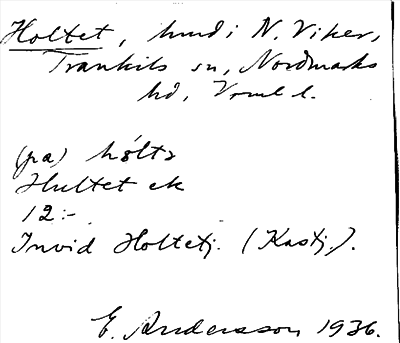 Holtet, hmd i N. Viker,
Trankils sn, Nordmarks
hd, Vrml l.
(pa) hólta
Hultet ek
12:-
Invid Holtetj. (Kastj.).
E. Andersson 1936.